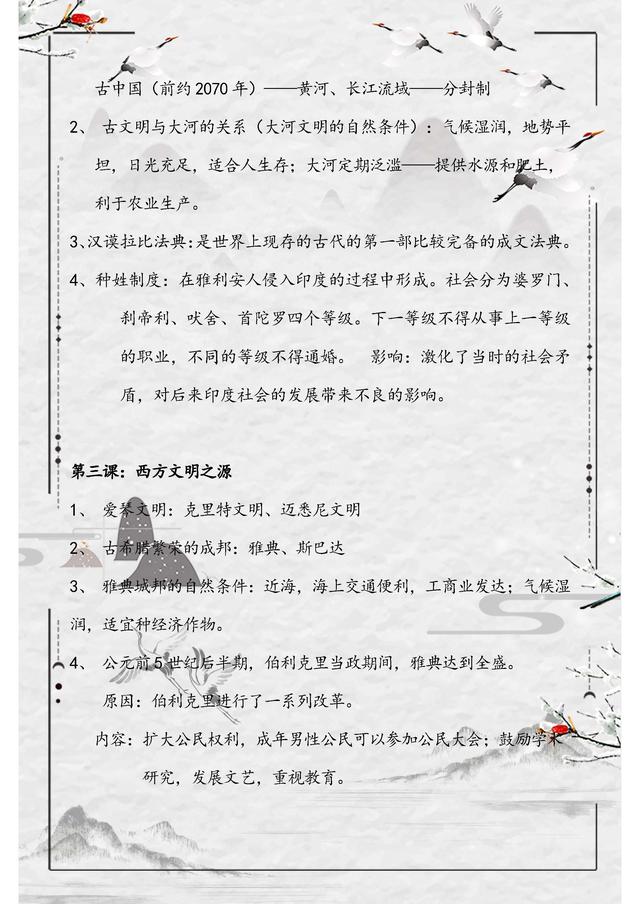 古中国（前约2070年）——黄河、长江流域——分封制
2、 古文明与大河的关系（大河文明的自然条件）：气候湿润，地势平
坦，日光充足，适合人生存；大河定期泛滥——提供水源和肥土，
利于农业生产。
3、汉谟拉比法典：是世界上现存的古代的第一部比较完备的成文法典。
4、种姓制度：在雅利安人侵入印度的过程中形成。社会分为婆罗门、
刹帝利、吠舍、首陀罗四个等级。下一等级不得从事上一等级
的职业，不同的等级不得通婚。 影响：激化了当时的社会矛
盾，对后来印度社会的发展带来不良的影响。
第三课：西方文明之源
1、 爱琴文明：克里特文明、迈悉尼文明
2、 古希腊繁荣的成邦：雅典、斯巴达
3、 雅典城邦的自然条件：近海，海上交通便利，工商业发达；气候湿
润，适宜种经济作物。
4、 公元前5世纪后半期，伯利克里当政期间，雅典达到全盛。
原因：伯利克里进行了一系列改革。
内容：扩大公民权利，成年男性公民可以参加公民大会；鼓励学术
研究，发展文艺，重视教育。